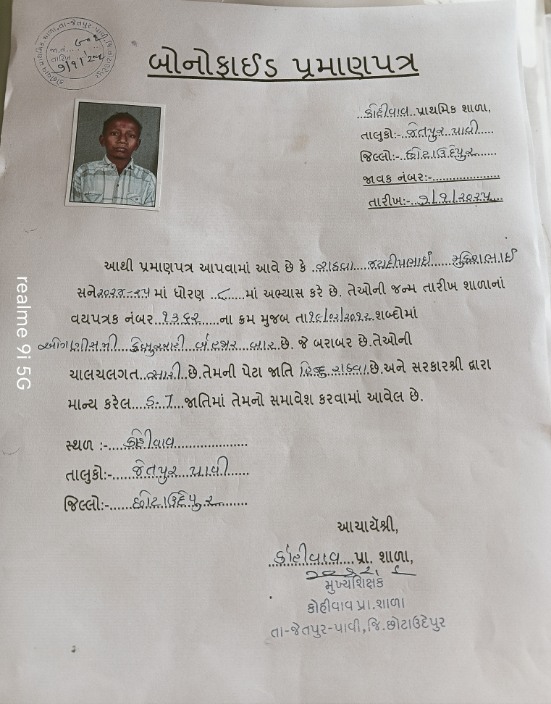 બોનોફાઈડ પ્રમાણપત્ર
કોહીવાવ પ્રાથમિક શાળા,
તાલુકો:- જેતપુર પાવી
જિલ્લો:- છોટાઉદેપુર
જાવક નંબર:-
તારીખ:- ૭/૧/૨૦૨૫
આથી પ્રમાણપત્ર આપવામાં આવે છે કે રાઠવા જયદીપભાઈ મુકેશભાઈ
સને ૨૦૨૪-૨૫ માં ધોરણ ૮ માં અભ્યાસ કરે છે. તેઓની જન્મ તારીખ શાળાનાં
વયપત્રક નંબર ૧૩૬૨ ના ક્રમ મુજબ તા ૧૯/૦૨/૨૦૧૨ શબ્દોમાં
ઓગણીસમી ફેબ્રુઆરી બે હજાર બાર છે. જે બરાબર છે. તેઓની
ચાલચલગત સારી છે. તેમની પેટા જાતિ હિન્દુ રાઠવા છે. અને સરકારશ્રી દ્વારા
માન્ય કરેલ S.T જાતિમાં તેમનો સમાવેશ કરવામાં આવેલ છે.
સ્થળ :- કોહીવાવ
તાલુકો:- જેતપુર પાવી
જિલ્લો:- છોટાઉદેપુર
આચાર્યશ્રી,
કોહીવાવ પ્રા. શાળા,
મુખ્યશિક્ષક
કોહીવાવ પ્રા.શાળા
તા-જેતપુર-પાવી, જિ.છોટાઉદેપુર
realme 9i 5G